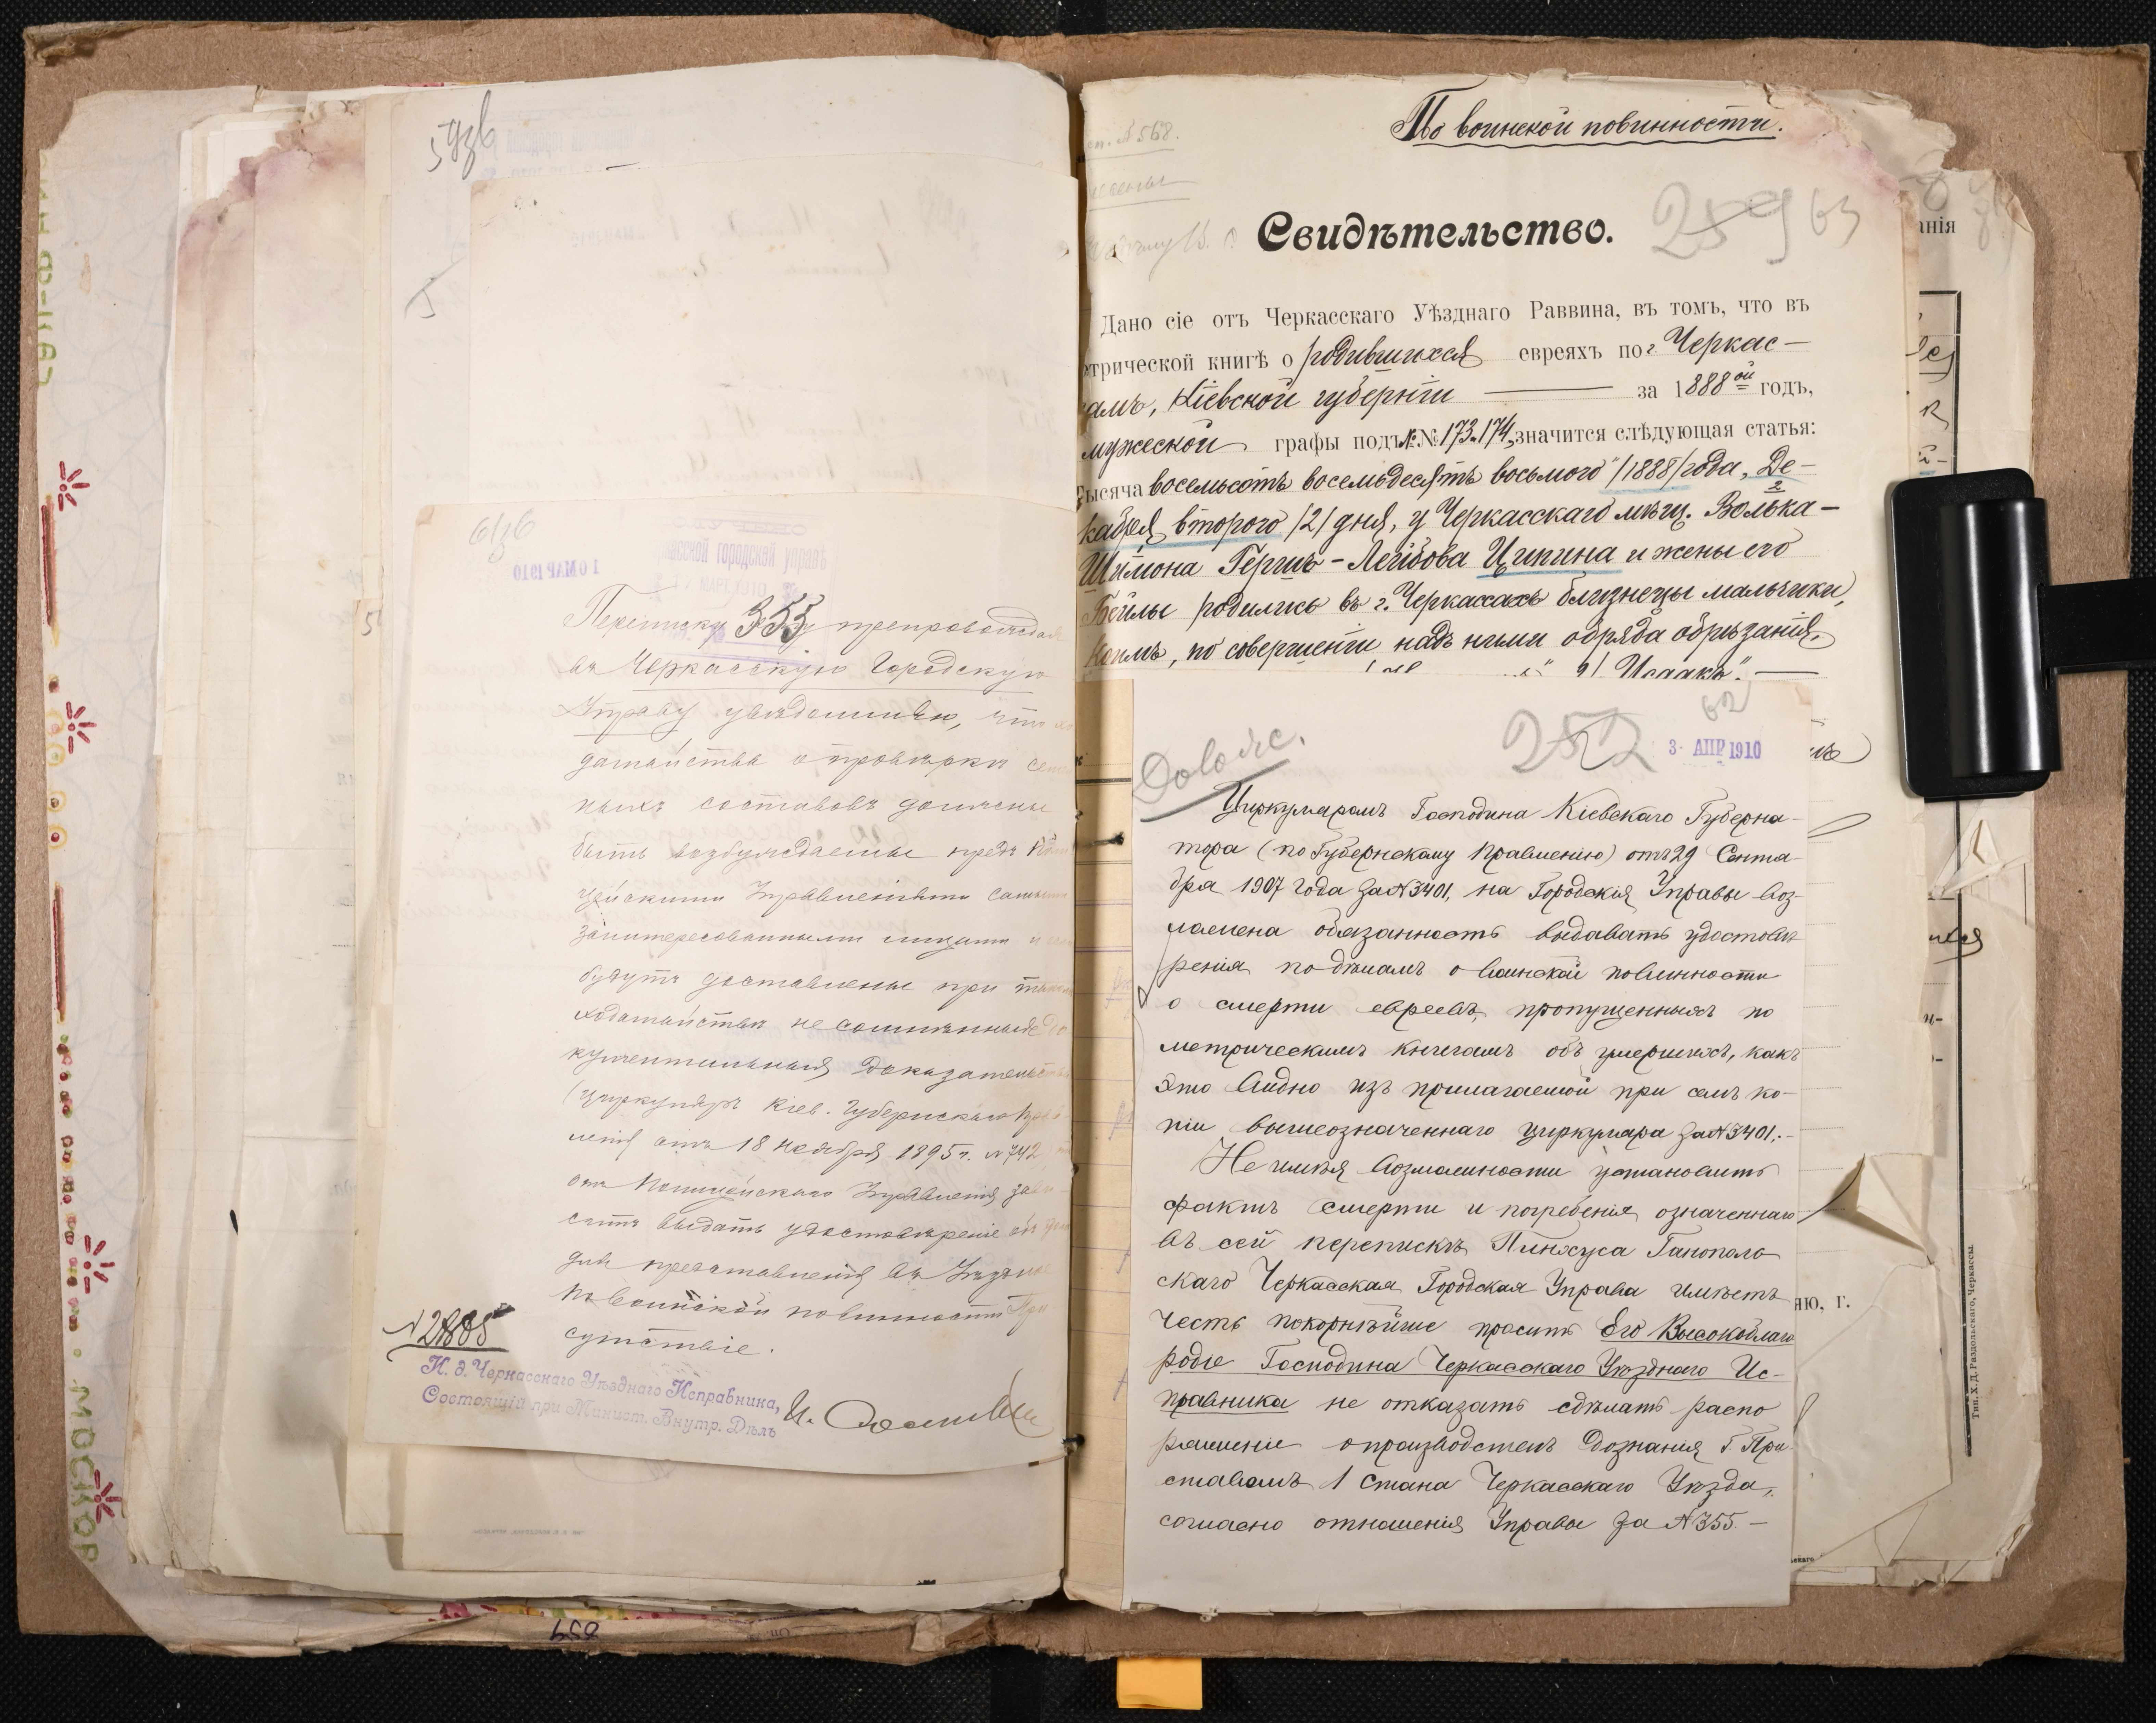 61 зв
Переписку 355 препровождая
въ Черкасскую Городскую
Управу увѣдомляю, что
датайства о провѣркѣ
ныхъ составовъ должны
быть возбуждаемы предъ
цейскими Управленіями самими
заинтересованными лицами и
будутъ доставлены при
ходатайствѣ не сомнѣнныя
кументальныя доказательства
(циркуляръ Кіев. Губернскаго
ленія отъ 18 ноября 1895 г. №742
отъ Полицейскаго Управленія
ситъ выдать удостовѣреніе
для представленія въ Уѣздное
по воинской повинности При
сутствіе.
№2885
И. д. Черкасскаго Уѣзднаго Исправника,
Состоящій при Минист. Внутр. Дѣлъ
По воинской повинности.
№ 568.
Свидѣтельство.
259 63
Дано сіе отъ Черкасскаго Уѣзднаго Раввина, въ томъ, что въ
трической книгѣ о родившихся евреяхъ по г. Черкас-
амъ, Кіевской губерніи — за 1888ой годъ,
мужеской графы подъ №№ 173 и 174, значится слѣдующая статья:
Тысяча восемьсотъ восемьдесятъ восьмого /1888/ года, Де-
кабря второго /2/ дня, у Черкасскаго мѣщ. Волька-
Шимона Гершъ-Лейбова Ципина и жены его
Бейлы родились въ г. Черкассахъ близнецы мальчики,
коимъ, по совершеніи надъ ними обряда обрѣзанія,
2/ Исаакъ". —
Долож.
252 62
3- АПР 1910
Циркуляромъ Господина Кіевскаго Губерна-
тора (по Губернскому Правленію) отъ 29 Сентя-
бря 1907 года за №3401, на Городскія Управы воз-
ложена обязанность выдавать удостовѣ
ренія по дѣламъ о воинской повинности
о смерти евреевъ, пропущенныхъ по
метрическимъ книгамъ объ умершихъ, какъ
это видно изъ прилагаемой при семъ ко-
піи вышеозначеннаго циркуляра за №3401.-
Не имѣя возможности установить
фактъ смерти и погребенія означеннаго
въ сей перепискѣ Пинхуса Ганополь
скаго Черкасская Городская Управа имѣетъ
честь покорнѣйше просить Его Высокоблаго
родіе Господина Черкасскаго Уѣзднаго Ис-
правника не отказать сдѣлать распо
ряженіе о производствѣ дознанія Г. При
ставомъ 1 стана Черкасскаго Уѣзда,
согласно отношенія Управы за №355.-
анія
ню, г.
Тип. Х. Д. Раздольскаго, Черкассы.